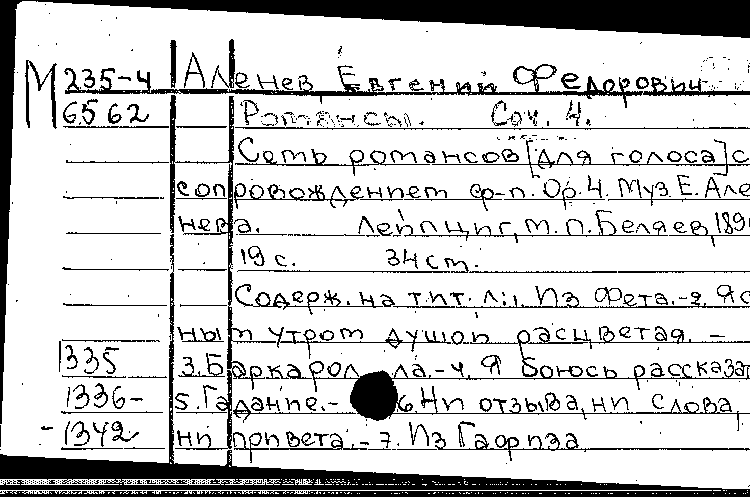 М 235-4 Аленев, Евгений Федорович
6562 Романсы. Соч. 4.
Семь романсов [для голоса] с
сопровождением ф-п. Ор. 4. Муз. Е. Але
нева. Лейпциг, М. П. Беляев, 189
19 с. 34 см.
Содерж. на тит. л.: 1. Из Фета. - 2. Яс
ным утром душой расцветая. -
335 3. Баркарол ла. - 4. Я боюсь рассказат
1336- 5. Гадание. - 6. Ни отзыва, ни слова,
-1342 ни привета. - 7. Из Гафиза